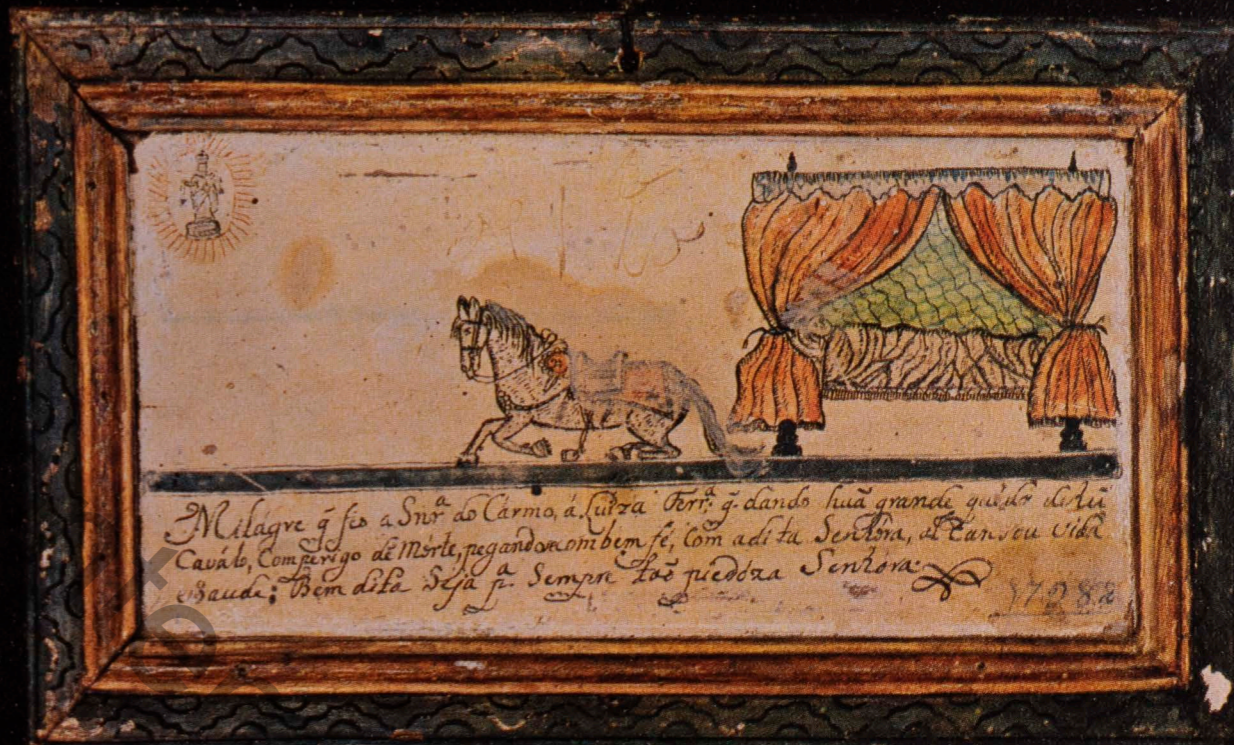 Milagre q̃ fes a Snr.ª do Cármo, á Luiza Ferr.ª q̃. dando huã grande quéda de hũ
Caválo, Com perigo de Mórte, pegandose com bem fé, Com a dita Senhóra, alcansou vida
e Saude; Bem dita Seja p.ª Sempre taõ piedóza Senhóra.